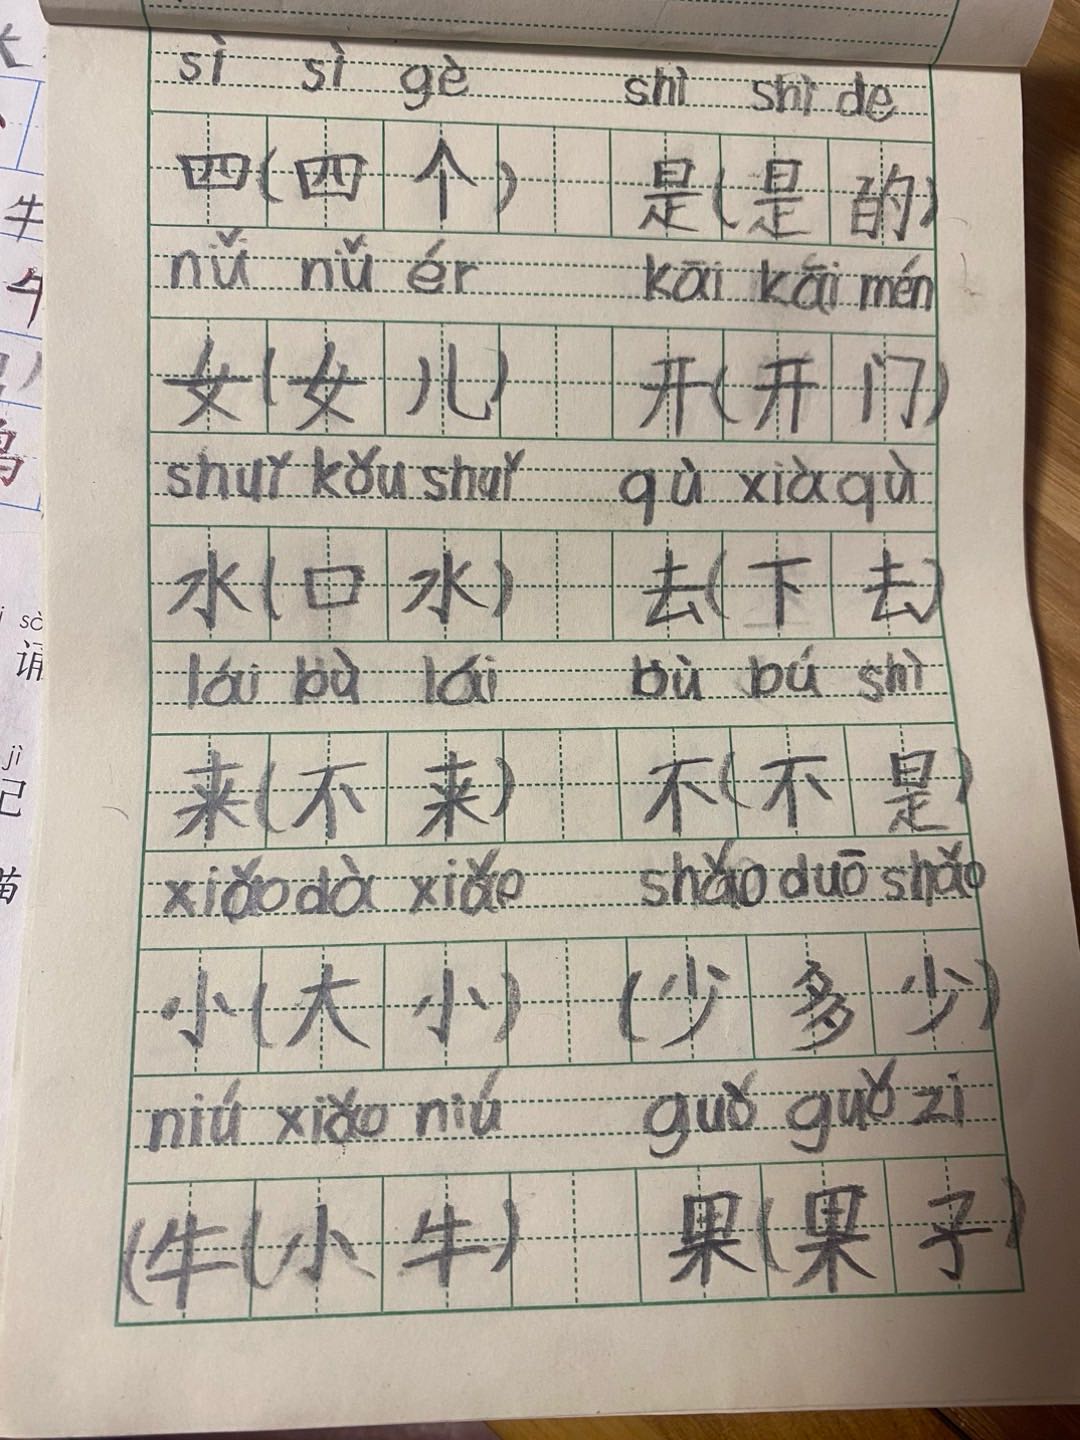 sì sì gè shì shì de
四(四个) 是(是的)
nǚ nǚ ér kāi kāi mén
女(女儿) 开(开门)
shuǐ kǒu shuǐ qù xià qù
水(口水) 去(下去)
lái bù lái bù bú shì
来(不来) 不(不是)
xiǎo dà xiǎo shǎo duō shǎo
小(大小) (少多少)
niú xiǎo niú guǒ guǒ zi
(牛(小牛) 果(果子)
牛
sò
诵
jì
记